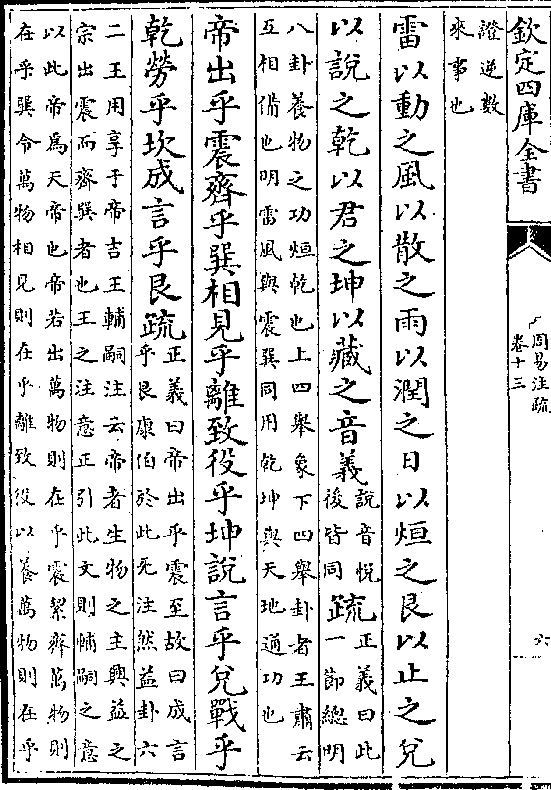 欽定四庫全書
周易注疏
卷十三
六
證逆數
來事也
雷以動之風以散之雨以潤之日以烜之艮以止之兌
以說之乾以君之坤以藏之音義
說音悅
後皆同
疏
正義曰此
一節總明
八卦養物之功烜乾也上四舉象下四舉卦者王肅云
互相備也明雷風與震巽同用乾坤與天地通功也
帝出乎震齊乎巽相見乎離致役乎坤說言乎兌戰乎
乾勞乎坎成言乎艮疏
正義曰帝出乎震至故曰成言
乎艮康伯於此死注然益卦六
二王用享于帝吉王輔嗣注云帝者生物之主興益之
宗出震而齊巽者也王之注意正引此文則輔嗣之意
以此帝為天帝也帝若出萬物則在乎震絜齊萬物則
在乎巽令萬物相見則在乎離致役以養萬物則在乎